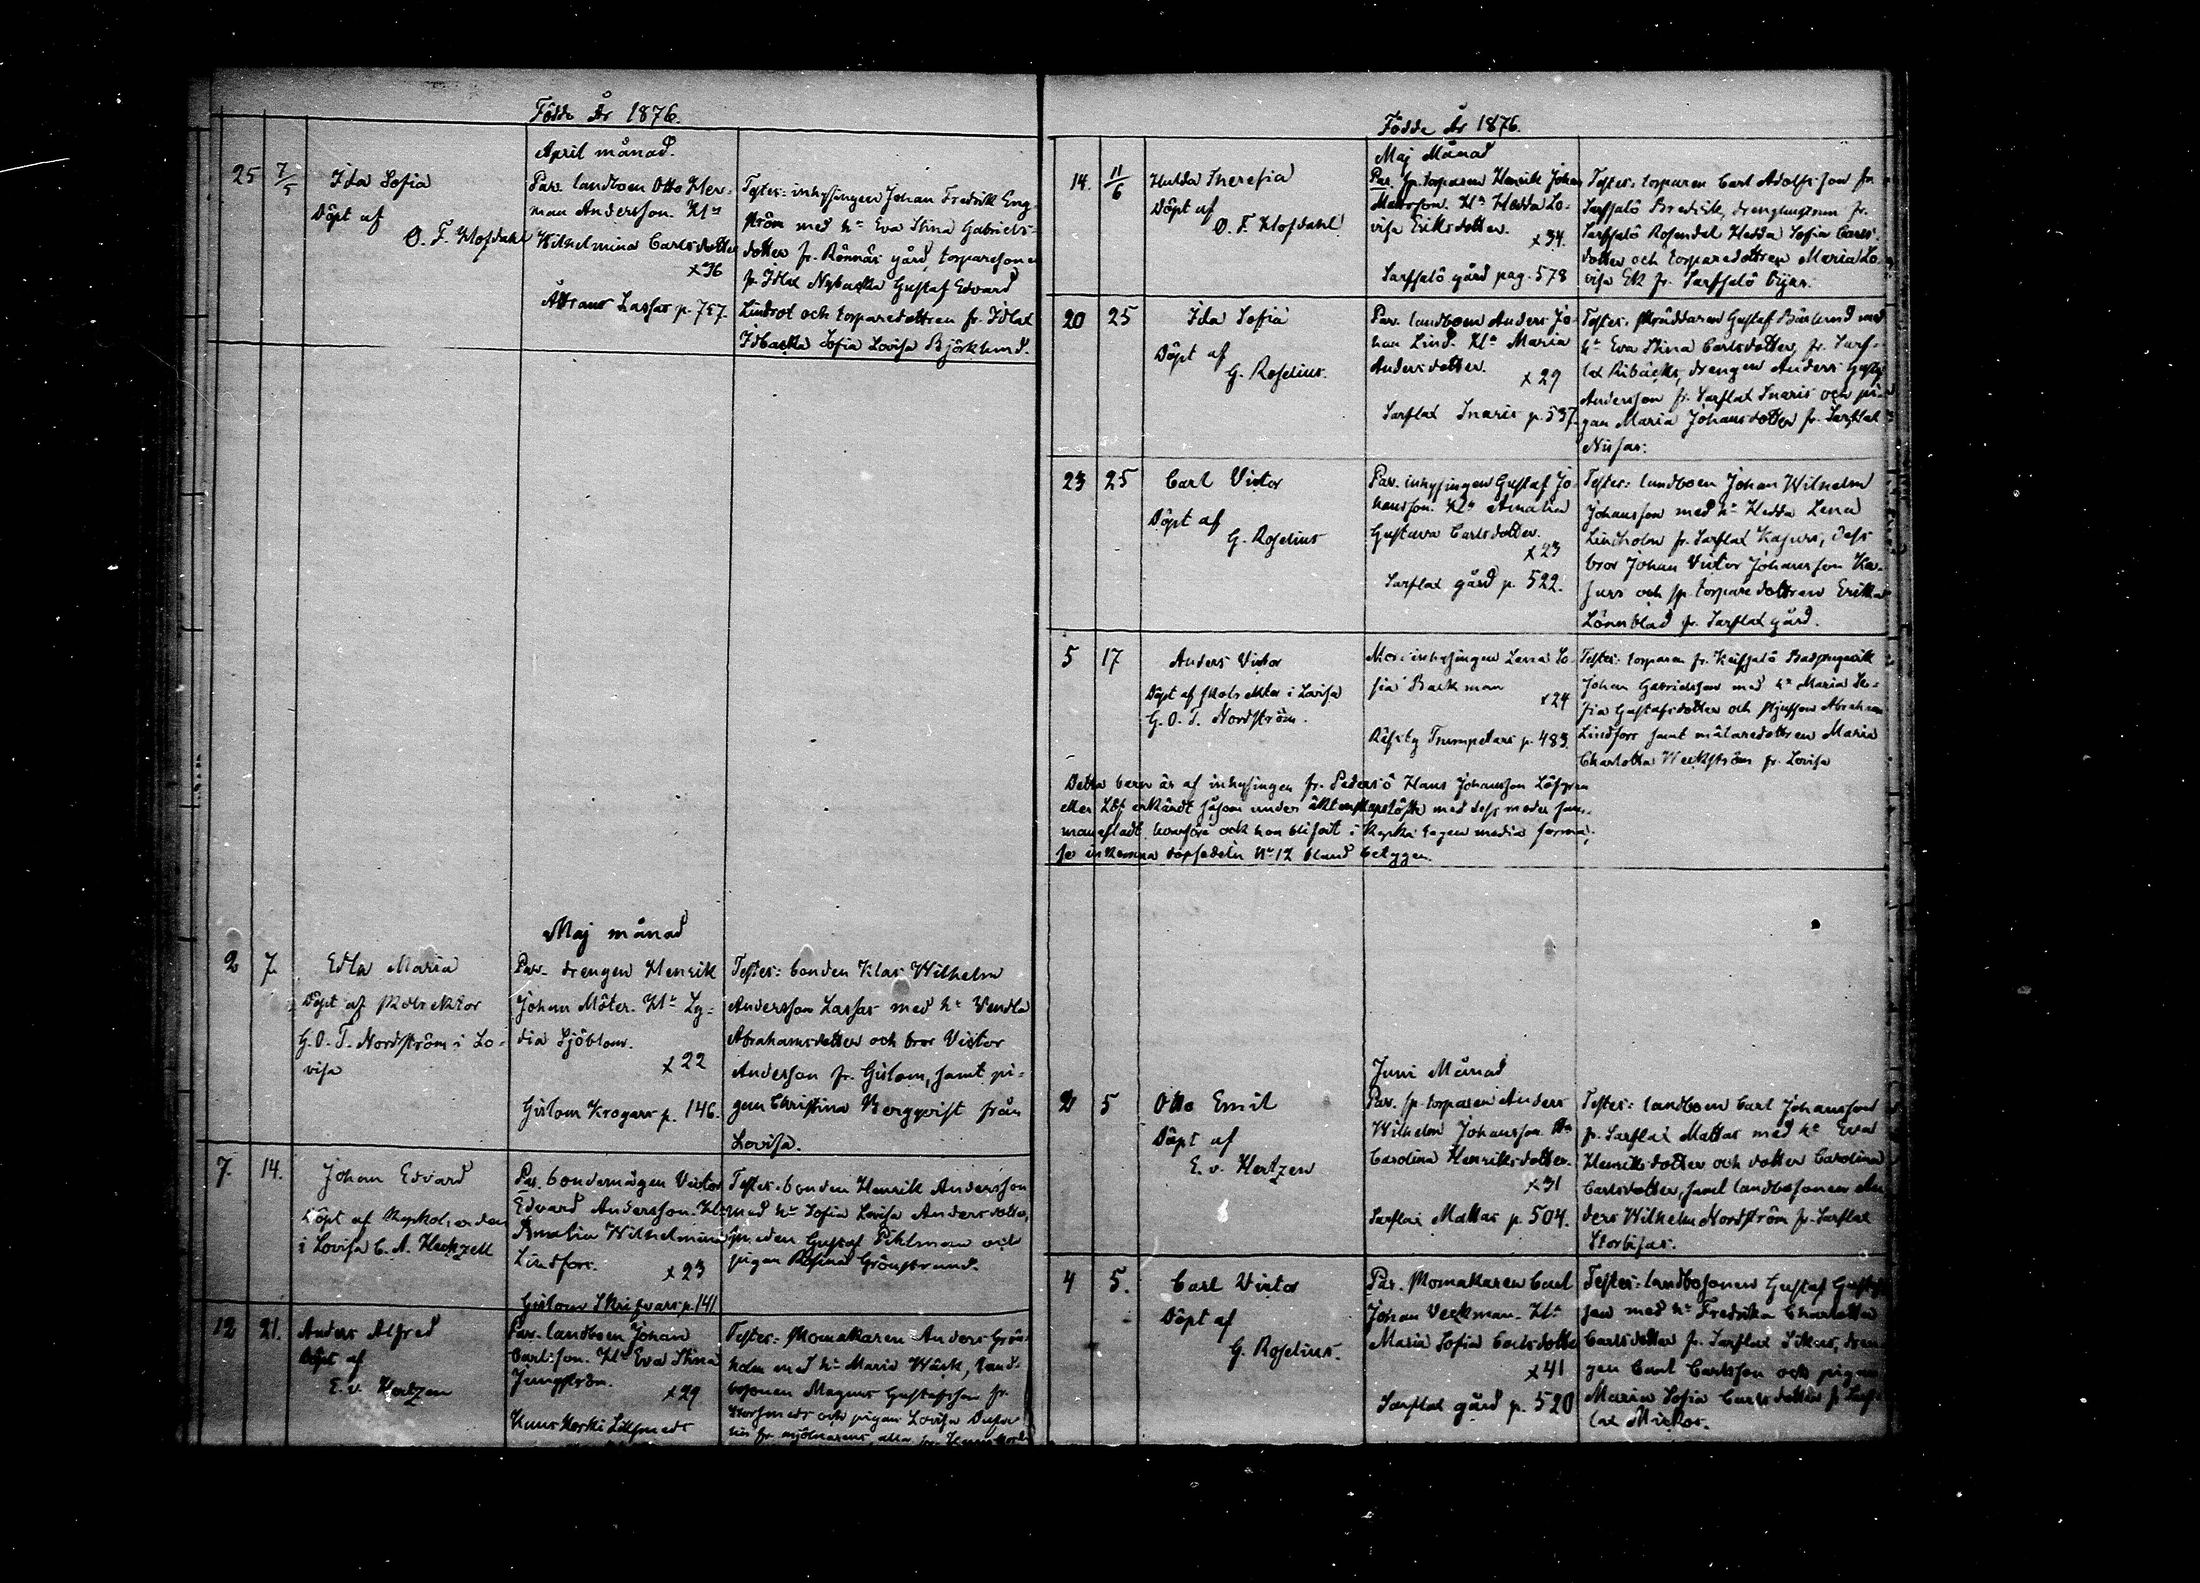 Födde År 1876.
April månad.
25 7/5 Ida Sofia
Döpt af
O. F. Hofdahl
Par. landboen Otto Her-
man Andersson. Hu
Wilhelmina Carlsdotter
x 36
Lassas p. 757.
Testes: inhysingen Johan Fredrik Eng-
ström med h. Eva Stina Gabriels-
dotter fr. Rönnäs gård, torparesonen
fr. Idlax Nybacka Gustaf Edvard
Lindrot och torparedottren fr. Idlax
Idbacka Sofia Lovisa Björklund.
Maj månad
2 7. Edla Maria
Döpt af skolrektor
G. O. T. Nordström i Lo-
visa
Par. drengen Henrik
Johan Möter. Hu Ly-
dia Sjöblom.
x 22
Gislom Krogars p. 146.
Testes: bonden Klas Wilhelm
Andersson Lassas med h. Vendla
Abrahamsdotter och bror Victor
Andersson fr. Gislom, samt pi-
gan Christina Bergqvist från
Lovisa.
7. 14. Johan Edvard
Döpt af
i Lovisa C. A. Heckzell
Par. bondemågen Victor
Edvard Andersson. Hu
Amalia Wilhelmina
Lindfors.
x 23
Gislom Skrifvars p. 141
Testes: bonden Henrik Andersson
med h. Sofia Lovisa Andersdotter,
Smeden Gustaf Pihlman och
pigan Rosina Grönstrand.
12 21. Anders Alfred
Döpt af
E. v. Hertzen
Par. landboen Johan
Carlsson. Hu Eva Stina
Ljungström.
x 29
Kuuskoski Lillsmeds
Testes: Skomakaren Anders Grön-
holm med h. Maria Wäck, land-
bosonen Magnus Gustafsson fr.
Storsmeds och pigan Lovisa
Födde År 1876.
Maj Månad
14. 11/6 Hulda Theresia
Döpt af
O. F. Hofdahl
Par. sp. torparen Henrik Johan
Matsson. Hu Hedda Lo-
visa Eriksdotter.
x 34.
Sarfsalö gård pag. 578
Testes: torparen Carl Adolfsson fr.
Sarfsalö Bredvik, drenghustrun fr.
Sarfsalö Rosendal Hedda Sofia Carls-
dotter och torparedottren Maria Lo-
visa Ek fr. Sarfsalö byen.
20 25 Ida Sofia
Döpt af
G. Roselius.
Par. landboen Anders Jo-
han Lind. Hu Maria
Andersdotter.
x 29
Sarflax Snaris p. 537.
Testes: skräddaren Gustaf Bärlund med
h. Eva Stina Carlsdotter fr. Sarf-
lax Ribäcks, drengen Anders Gustaf
Andersson fr. Sarflax Snaris och pi-
gan Maria Johansdotter fr. Sarflax
Nissas.
23 25 Carl Victor
Döpt af
G. Roselius
Par. inhysingen Gustaf Jo-
hansson. Hu Amalia
Gustava Carlsdotter.
x 23
Sarflax gård p. 522.
Testes: landboen Johan Wilhelm
Johansson med h. Hedda Lena
Lindholm fr. Sarflax Kasurs, dess
bror Johan Victor Johansson Ka-
surs och sp. torparedottren Erika
Lönnblad fr. Sarflax gård.
5 17 Anders Victor
Döpt af skolrektor i Lovisa
G. O. T. Nordström.
Mor: inhysingen Lena So-
fia Backman
x 24
Räfsby Trumpetars p. 483.
Testes: torparen fr. Keipsalö
Johan Gabrielsson med h. Maria So-
fia Gustafsdotter och skjutson Abraham
Lindfors samt målaredottren Maria
Charlotta Weckström fr. Lovisa
Detta barn är af inhysingen fr. Pedersö Hans Johansson Löfgren
eller Löf erkändt såsom under äktenskapslöfte med dess moder sam-
manafladt, hvarföre ock hon blifvit i kyrka tagen media forma,
se inkomna dopsedeln No 12 bland betygen.
Juni Månad
2 5 Otto Emil
Döpt af
E. v. Hertzen
Par. sp. torparen Anders
Wilhelm Johansson. Hu
Carolina Henriksdotter.
x 31
Sarflax Mattas p. 504.
Testes: landboen Carl Johansson
fr. Sarflax Mattas med h. Eva
Henriksdotter och dotter Carolina
Carlsdotter, samt landbosonen An-
ders Wilhelm Nordström fr. Sarflax
Storbisas.
4 5. Carl Victor
Döpt af
G. Roselius.
Par. skomakaren Carl
Johan Veckman. Hu
Maria Sofia Carlsdotter
x 41
Sarflax gård p. 520
Testes: landbosonen Gustaf
son med h. Fredrika Charlotta
Carlsdotter fr. Sarflax Sikens, dren-
gen Carl Carlsson och pigan
Maria Sofia Carlsdotter fr. Sarf-
lax Mickos.